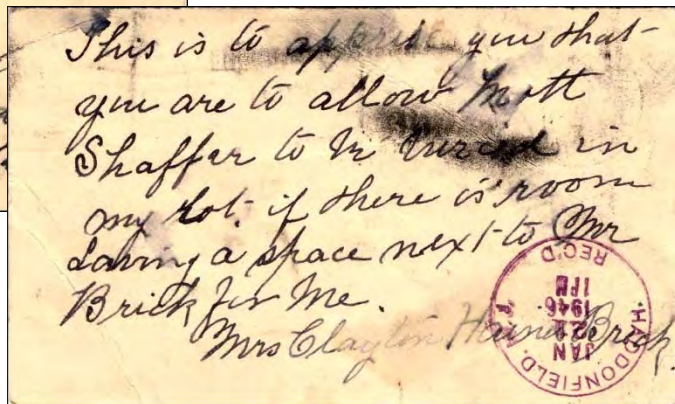 This is to apprise you that
you are to allow Mott
Shaffer to be buried in
my lot, if there is room
Saving a space next to Mr
Brick for Me.
Mrs Clayton Haines Brick
HADDONFIELD,
JAN
21
1946
1PM
REC'D